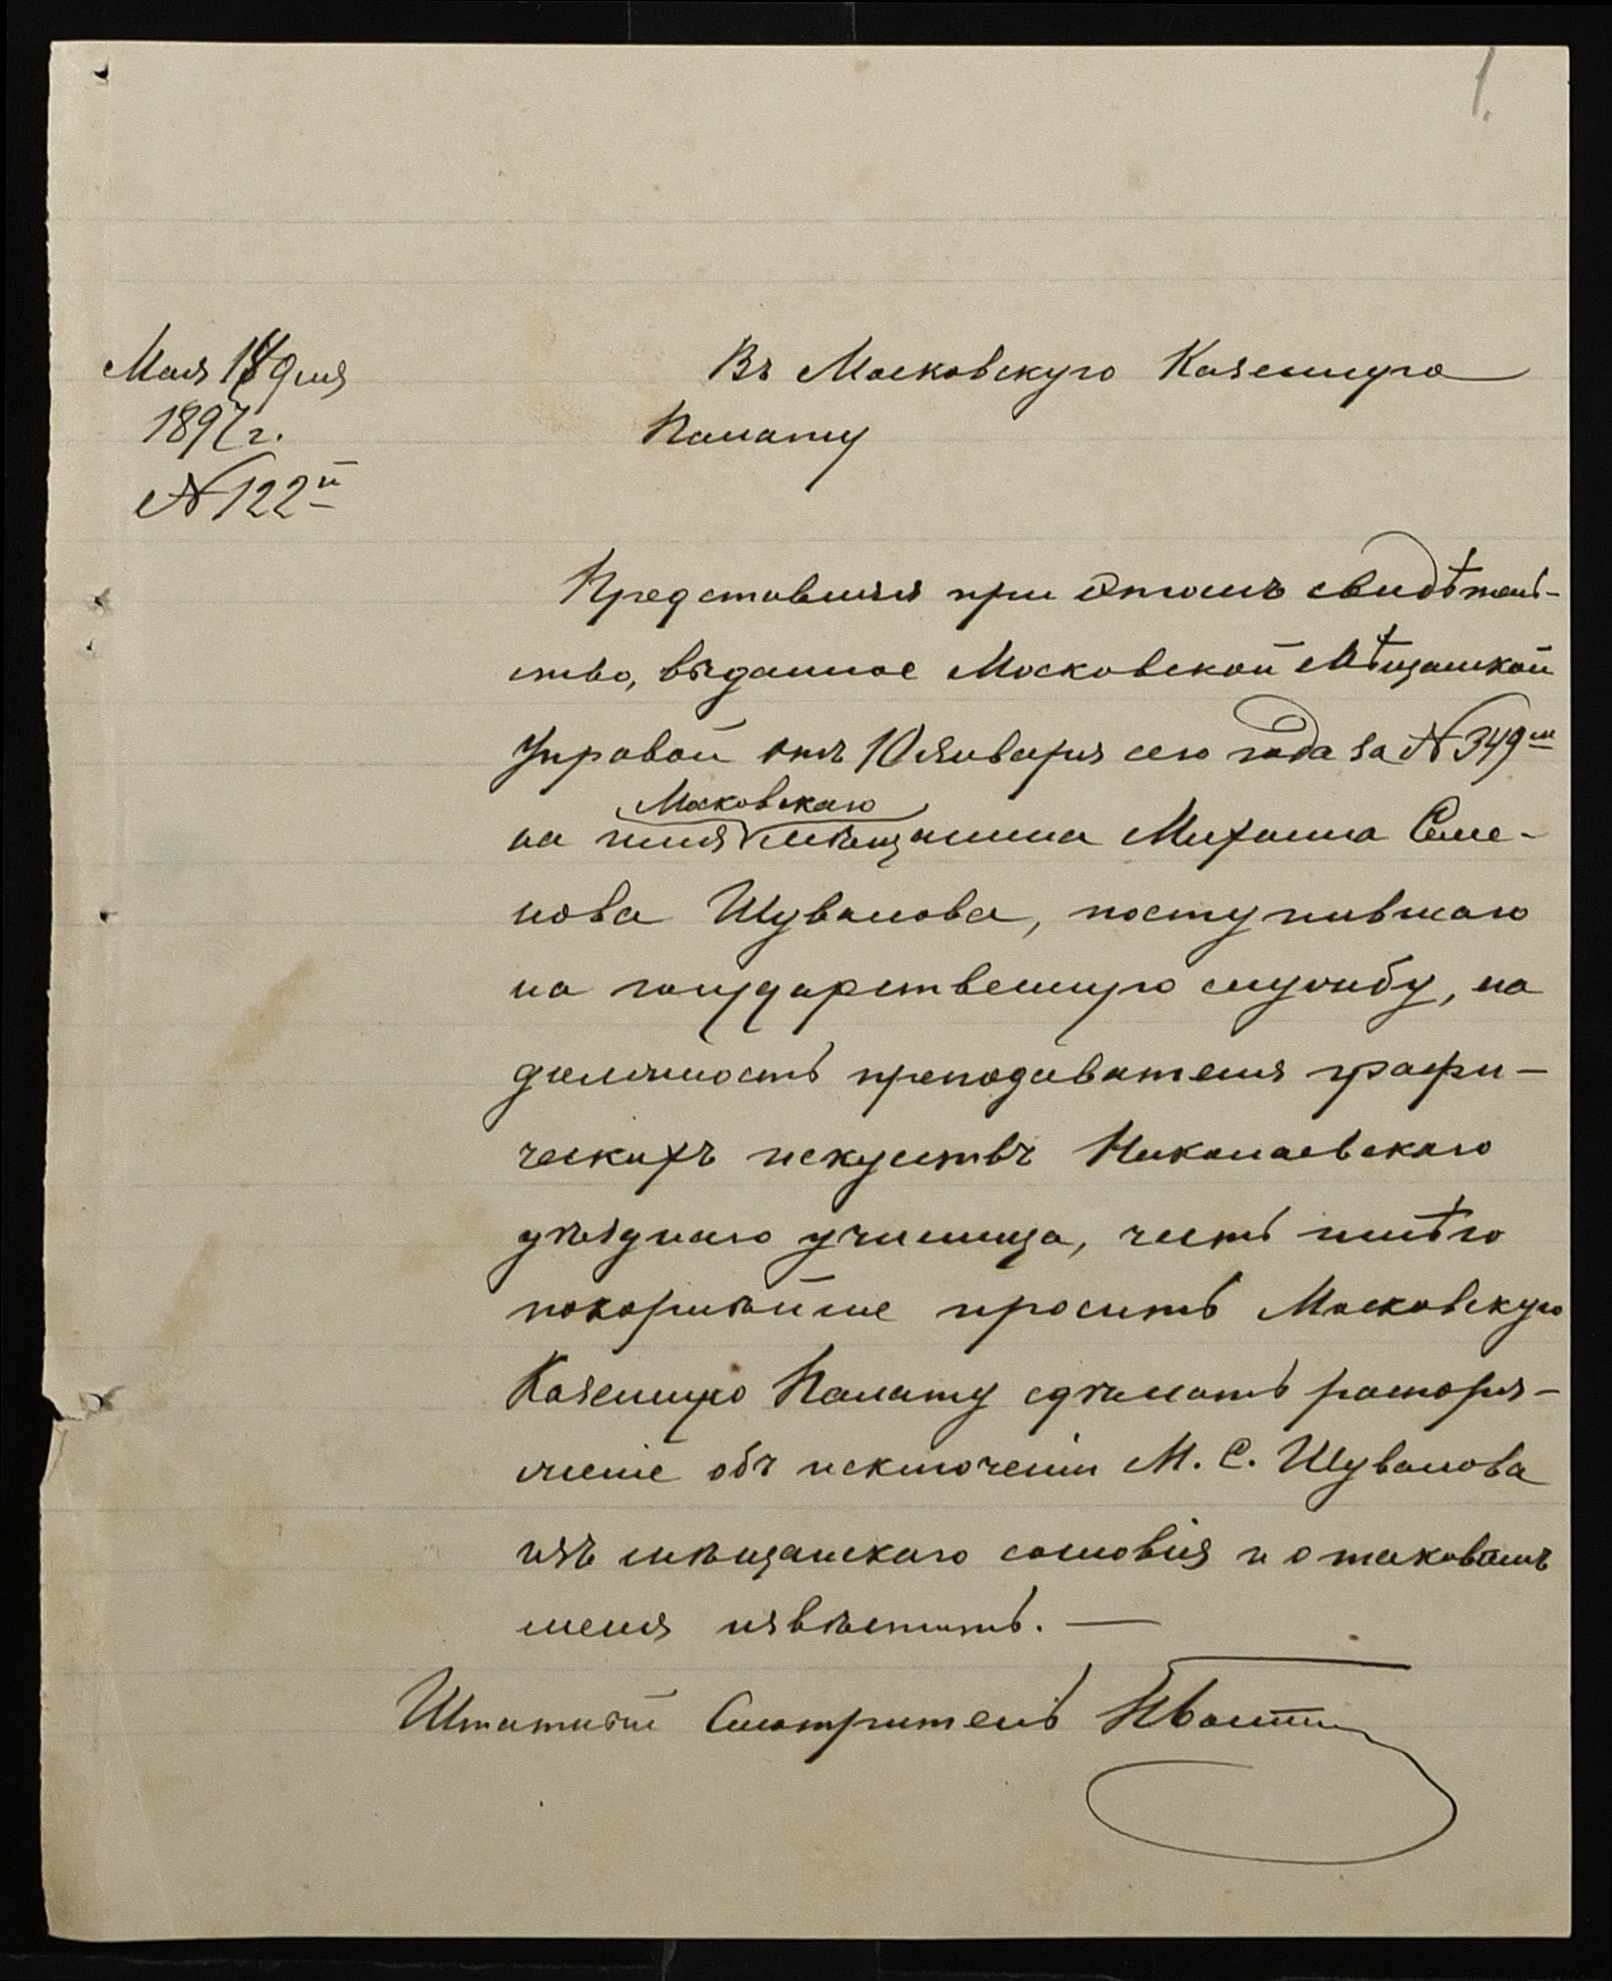 1.
Мая 18 дня
1897 г.
№ 122й
Въ Московскую Казенную
Палату
Представляя при этомъ свидѣтель-
ство, выданное Московской Мѣщанской
Управой отъ 10 января сего года за № 349м
Московскаго
на имя мѣщанина Михаила Семе-
нова Шувалова, поступившаго
на государственную службу, на
должность преподавателя графи-
ческихъ искуствъ Николаевскаго
уѣзднаго училища, честь имѣю
покорнѣйше просить Московскую
Казенную Палату сдѣлать распоря-
женіе объ исключеніи М. С. Шувалова
изъ мѣщанскаго сословія и о таковомъ
меня извѣстить. —
Штатный Смотритель